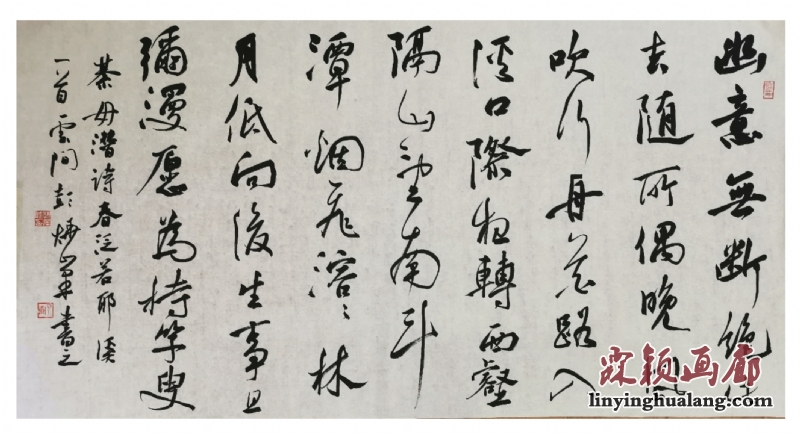 幽意無斷絕此
去随所偶晚風
吹行舟花路入
溪口際夜轉西壑
隔山望南斗
潭烟飛溶〻林
月低向後生事且
彌漫愿為持竿叟
綦毋潛詩春泛若耶溪
一首雲間彭書之
霖颖画廊
linyinghualang.com